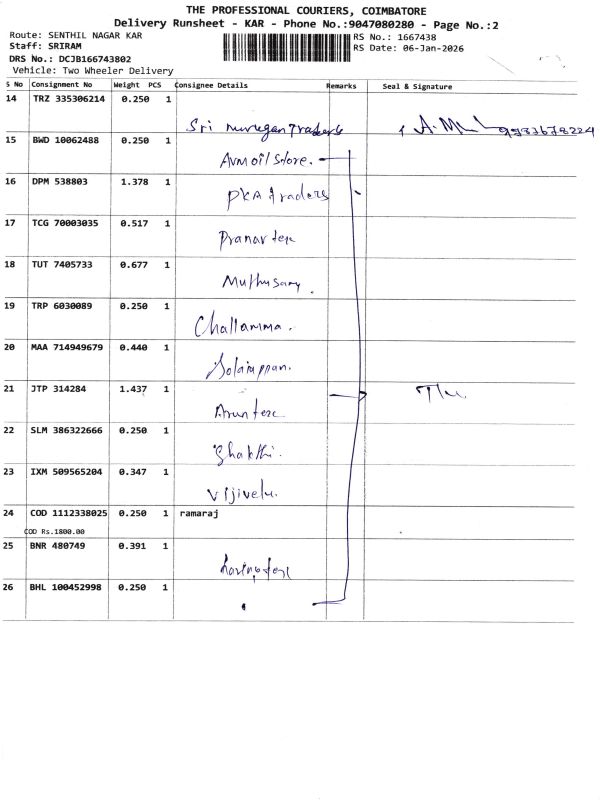 THE PROFESSIONAL COURIERS, COIMBATORE
Delivery Runsheet - KAR - Phone No.:9047080280 - Page No.:2
Route: SENTHIL NAGAR KAR
Staff: SRIRAM
DRS No.: DCJB166743802
Vehicle: Two Wheeler Delivery
RS No.: 1667438
RS Date: 06-Jan-2026
S No Consignment No Weight PCS Consignee Details Remarks Seal & Signature
14 TRZ 335306214 0.250 1
Sri murugan Traders
15 BWD 10062488 0.250 1
Avm oil Store.
16 DPM 538803 1.378 1
PKA traders
17 TCG 70003035 0.517 1
Pranav tex
18 TUT 7405733 0.677 1
Muthusamy
19 TRP 6030089 0.250 1
Challamma.
20 MAA 714949679 0.440 1
Solaiappan.
21 JTP 314284 1.437 1
Arun tex
22 SLM 386322666 0.250 1
Shakthi.
23 IXM 509565204 0.347 1
Vijivelu.
24 COD 1112338025 0.250 1 ramaraj
COD Rs.1800.00
25 BNR 480749 0.391 1
26 BHL 100452998 0.250 1